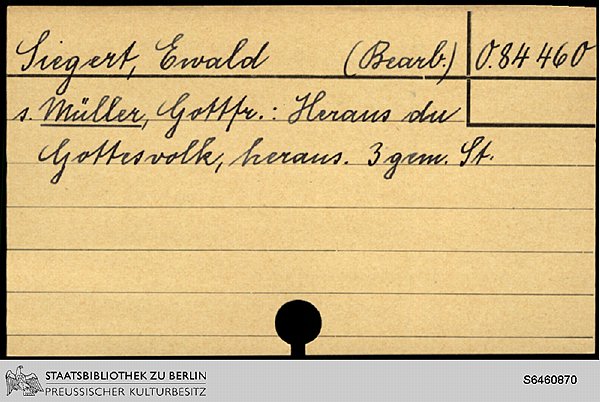 Siegert, Ewald (Bearb.) O.84 460
s. Müller, Gottfr.: Heraus du
Gottesvolk, heraus. 3 gem. St.
STAATSBIBLIOTHEK ZU BERLIN
PREUSSISCHER KULTURBESITZ
S6460870